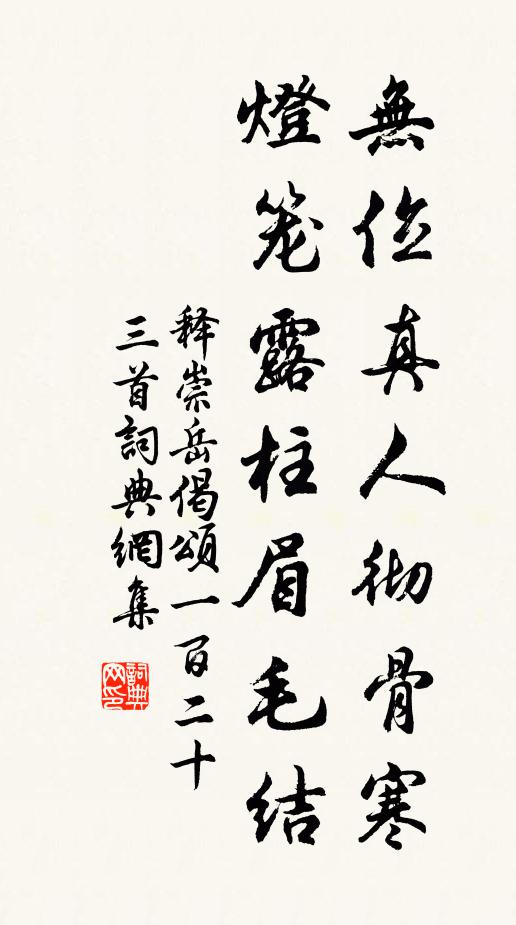 無位真人彻骨寒
燈笼露柱眉毛结
释崇岳偈頌一百二十
三首詞典網集
詞典网印